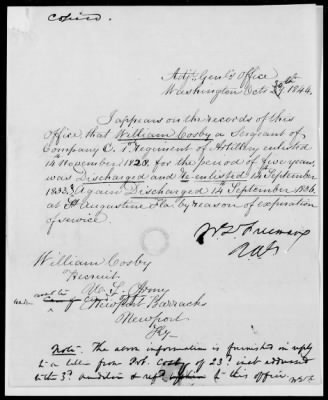 Copied.
Adjt. Genl's Office
Washington Octr 1844.
It appears on the records of this
Office, that William Cosby a Sergeant of
Company C. 1st Regiment of Artillery enlisted
14 November 1828. for the period of five years,
was Discharged and reenlisted 14 September
1833. Again Discharged 14th September 1836.
at St Augustine Fla by reason of expiration
of service.
William Cosby
Recruit
U. S. Army
Newport Barracks
Newport
Ky
Note. The above information is furnished in reply
to a letter from Rob. Cosby of 23d inst addressed
to the 3d Auditor & refd to this office.